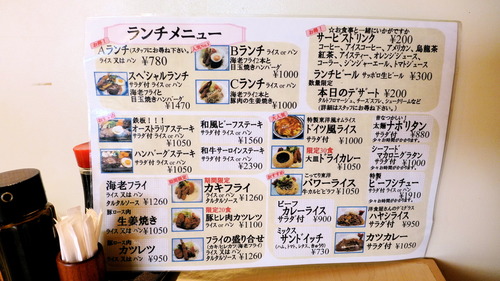 ランチメニュー
Aランチ(スタッフにお尋ね下さい。)
ライス又はパン ¥780
スペシャルランチ
サラダ付 ライス or パン
海老フライと
目玉焼きハンバーグ
¥1470
Bランチ ライス or パン
海老フライ2本と
目玉焼きハンバーグ
¥1000
Cランチ ライス or パン
海老フライ1本と
豚肉の生姜焼き
¥1000
☆お食事と一緒にいかがですか
サービスドリンク ¥200
コーヒー、アイスコーヒー、アメリカン、烏龍茶
紅茶、アイスティー、オレンジジュース、
コーラー、ジンジャーエール、トマトジュース
ランチビール ¥300
サッポロ生ビール
数量限定
本日のデザート ¥200
(詳細はスタッフにお尋ね下さい。)
鉄板!!!
オーストラリアステーキ
サラダ付 ライス or パン
¥1050
ハンバーグステーキ
サラダ付 ライス or パン
¥1050
和風ビーフステーキ
サラダ付 ライス or パン
¥1560
和牛サーロインステーキ
サラダ付 ライス or パン
¥2390
特製東洋風オムライス
ドイツ風ライス
サラダ付 ¥1050
限定30食
大皿ドライカレー
¥1050
こってり東洋
パワーライス
サラダ付 ¥1050
昔なつかしい!
太麺ナポリタン
サラダ付 ¥880
シーフード
マカロニグラタン
サラダ付 ¥1000
特製
ビーフシチュー
¥1910
海老フライ
ライス又はパン
タルタルソース ¥1260
豚ロース肉
生姜焼き
ライス又はパン ¥1050
豚ロース肉
カツレツ
ライス又はパン ¥950
期間限定
カキフライ
ライス又はパン
タルタルソース ¥1260
限定20食
豚ヒレ肉カツレツ
ライス又はパン ¥1050
フライの盛り合せ
(カキ・ヒレカツ・海老フライ)
ライス又はパン
タルタルソース ¥1260
ビーフ
カレーライス
サラダ付 ¥900
ミックス
サンドイッチ
¥730
洋食屋さんの「ハヤシ」
ハヤシライス
サラダ付 ¥1050
カツカレー
サラダ付 ¥1050